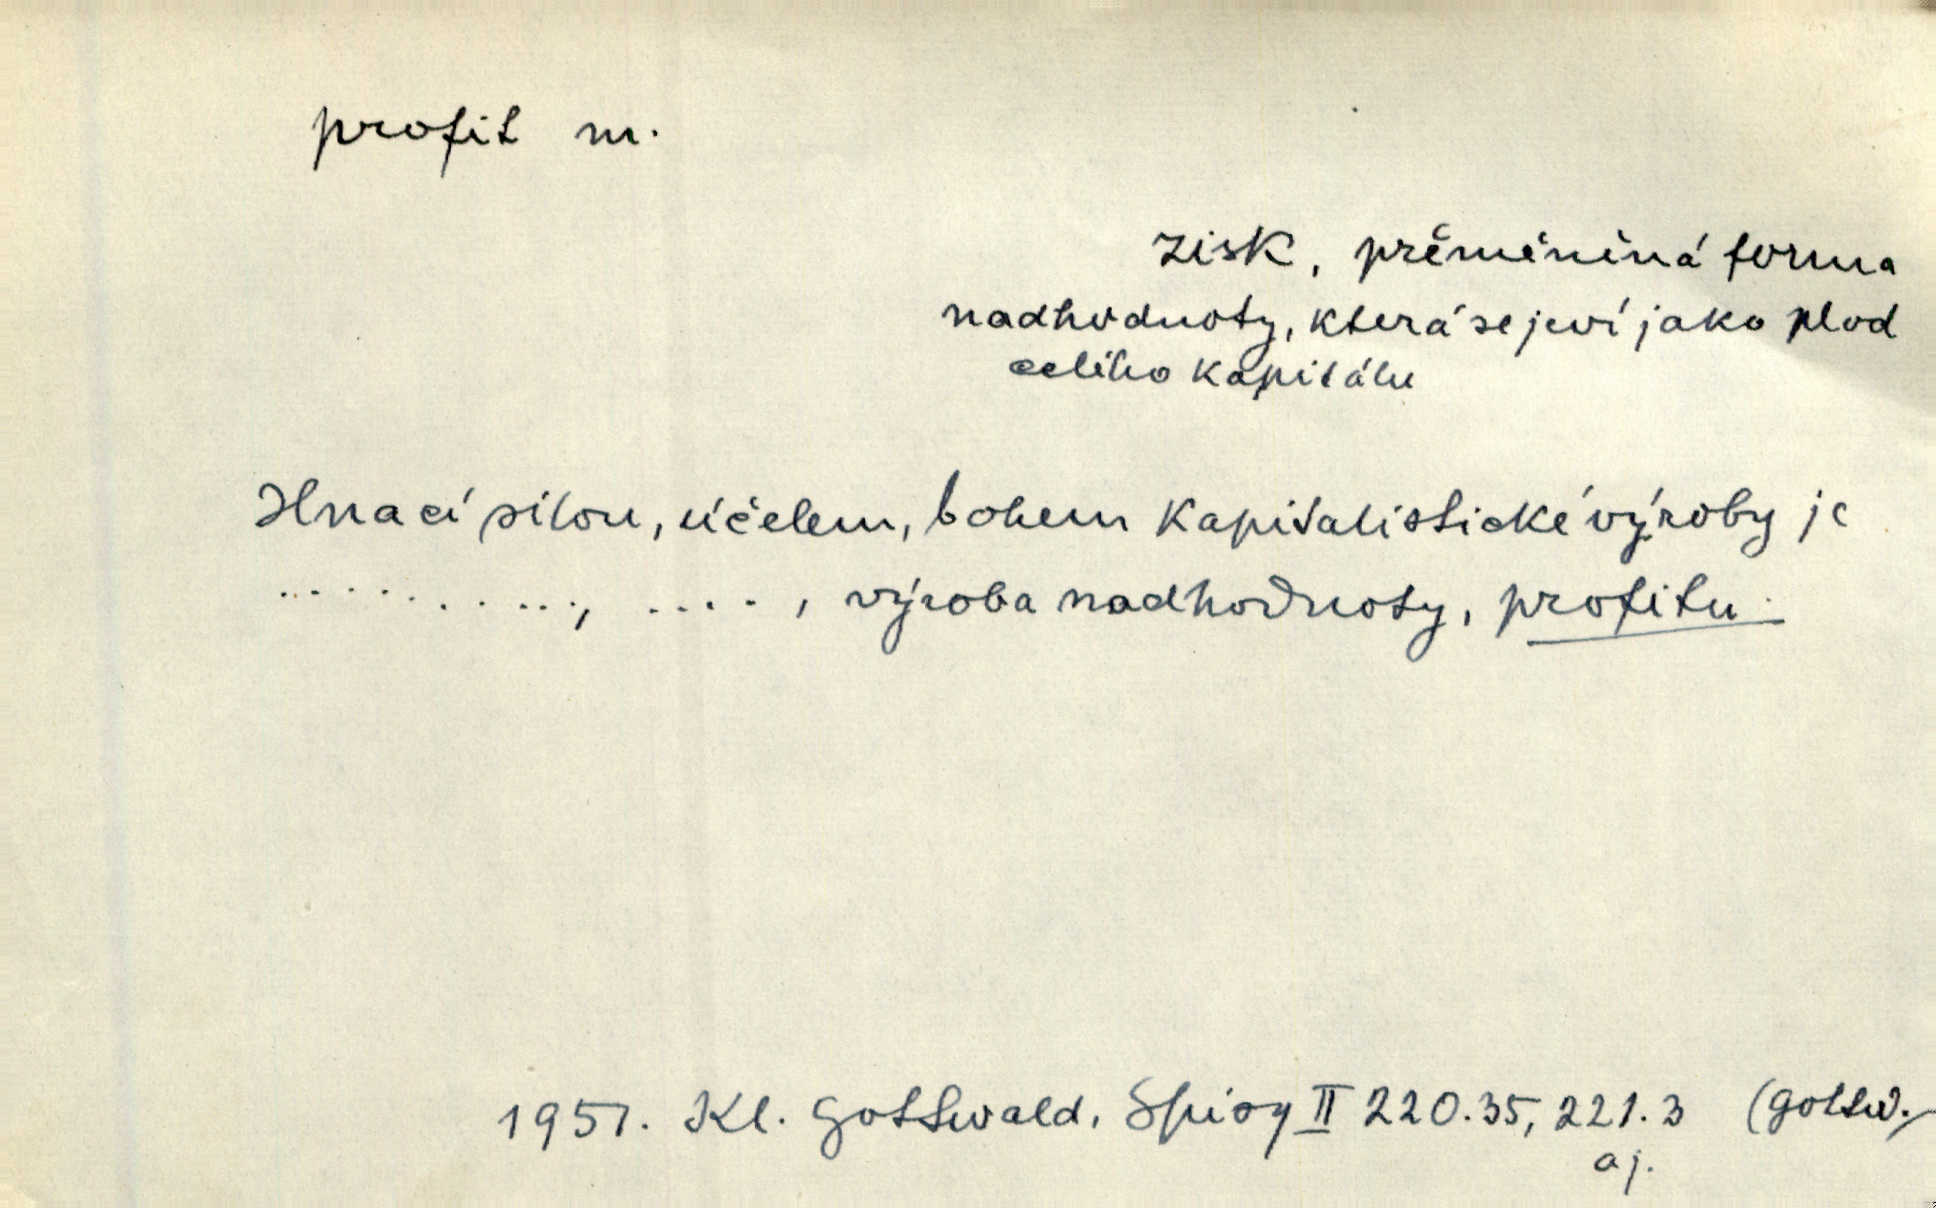 profit m.
zisk, přeměněná forma
nadhodnoty, která se jeví jako plod
celého kapitálu
Hnací silou, účelem, bohem kapitalistické výroby je
..........., ....., výroba nadhodnoty, profitu.
1951. Kl. Gottwald, Spisy II 220.35, 221.3 (Gottw.)
aj.